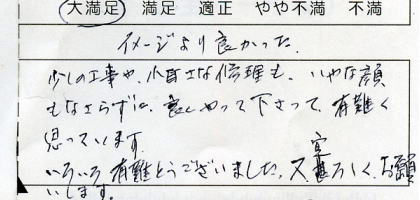 大満足 満足 適正 やや不満 不満
イメージより良かった.
少しの工事や、小さな修理も、いやな顔
もなさらずに、良くやって下さって、有難く
思っています.
いろいろ有難とうございました。又、宜ろしく、お願
いします.